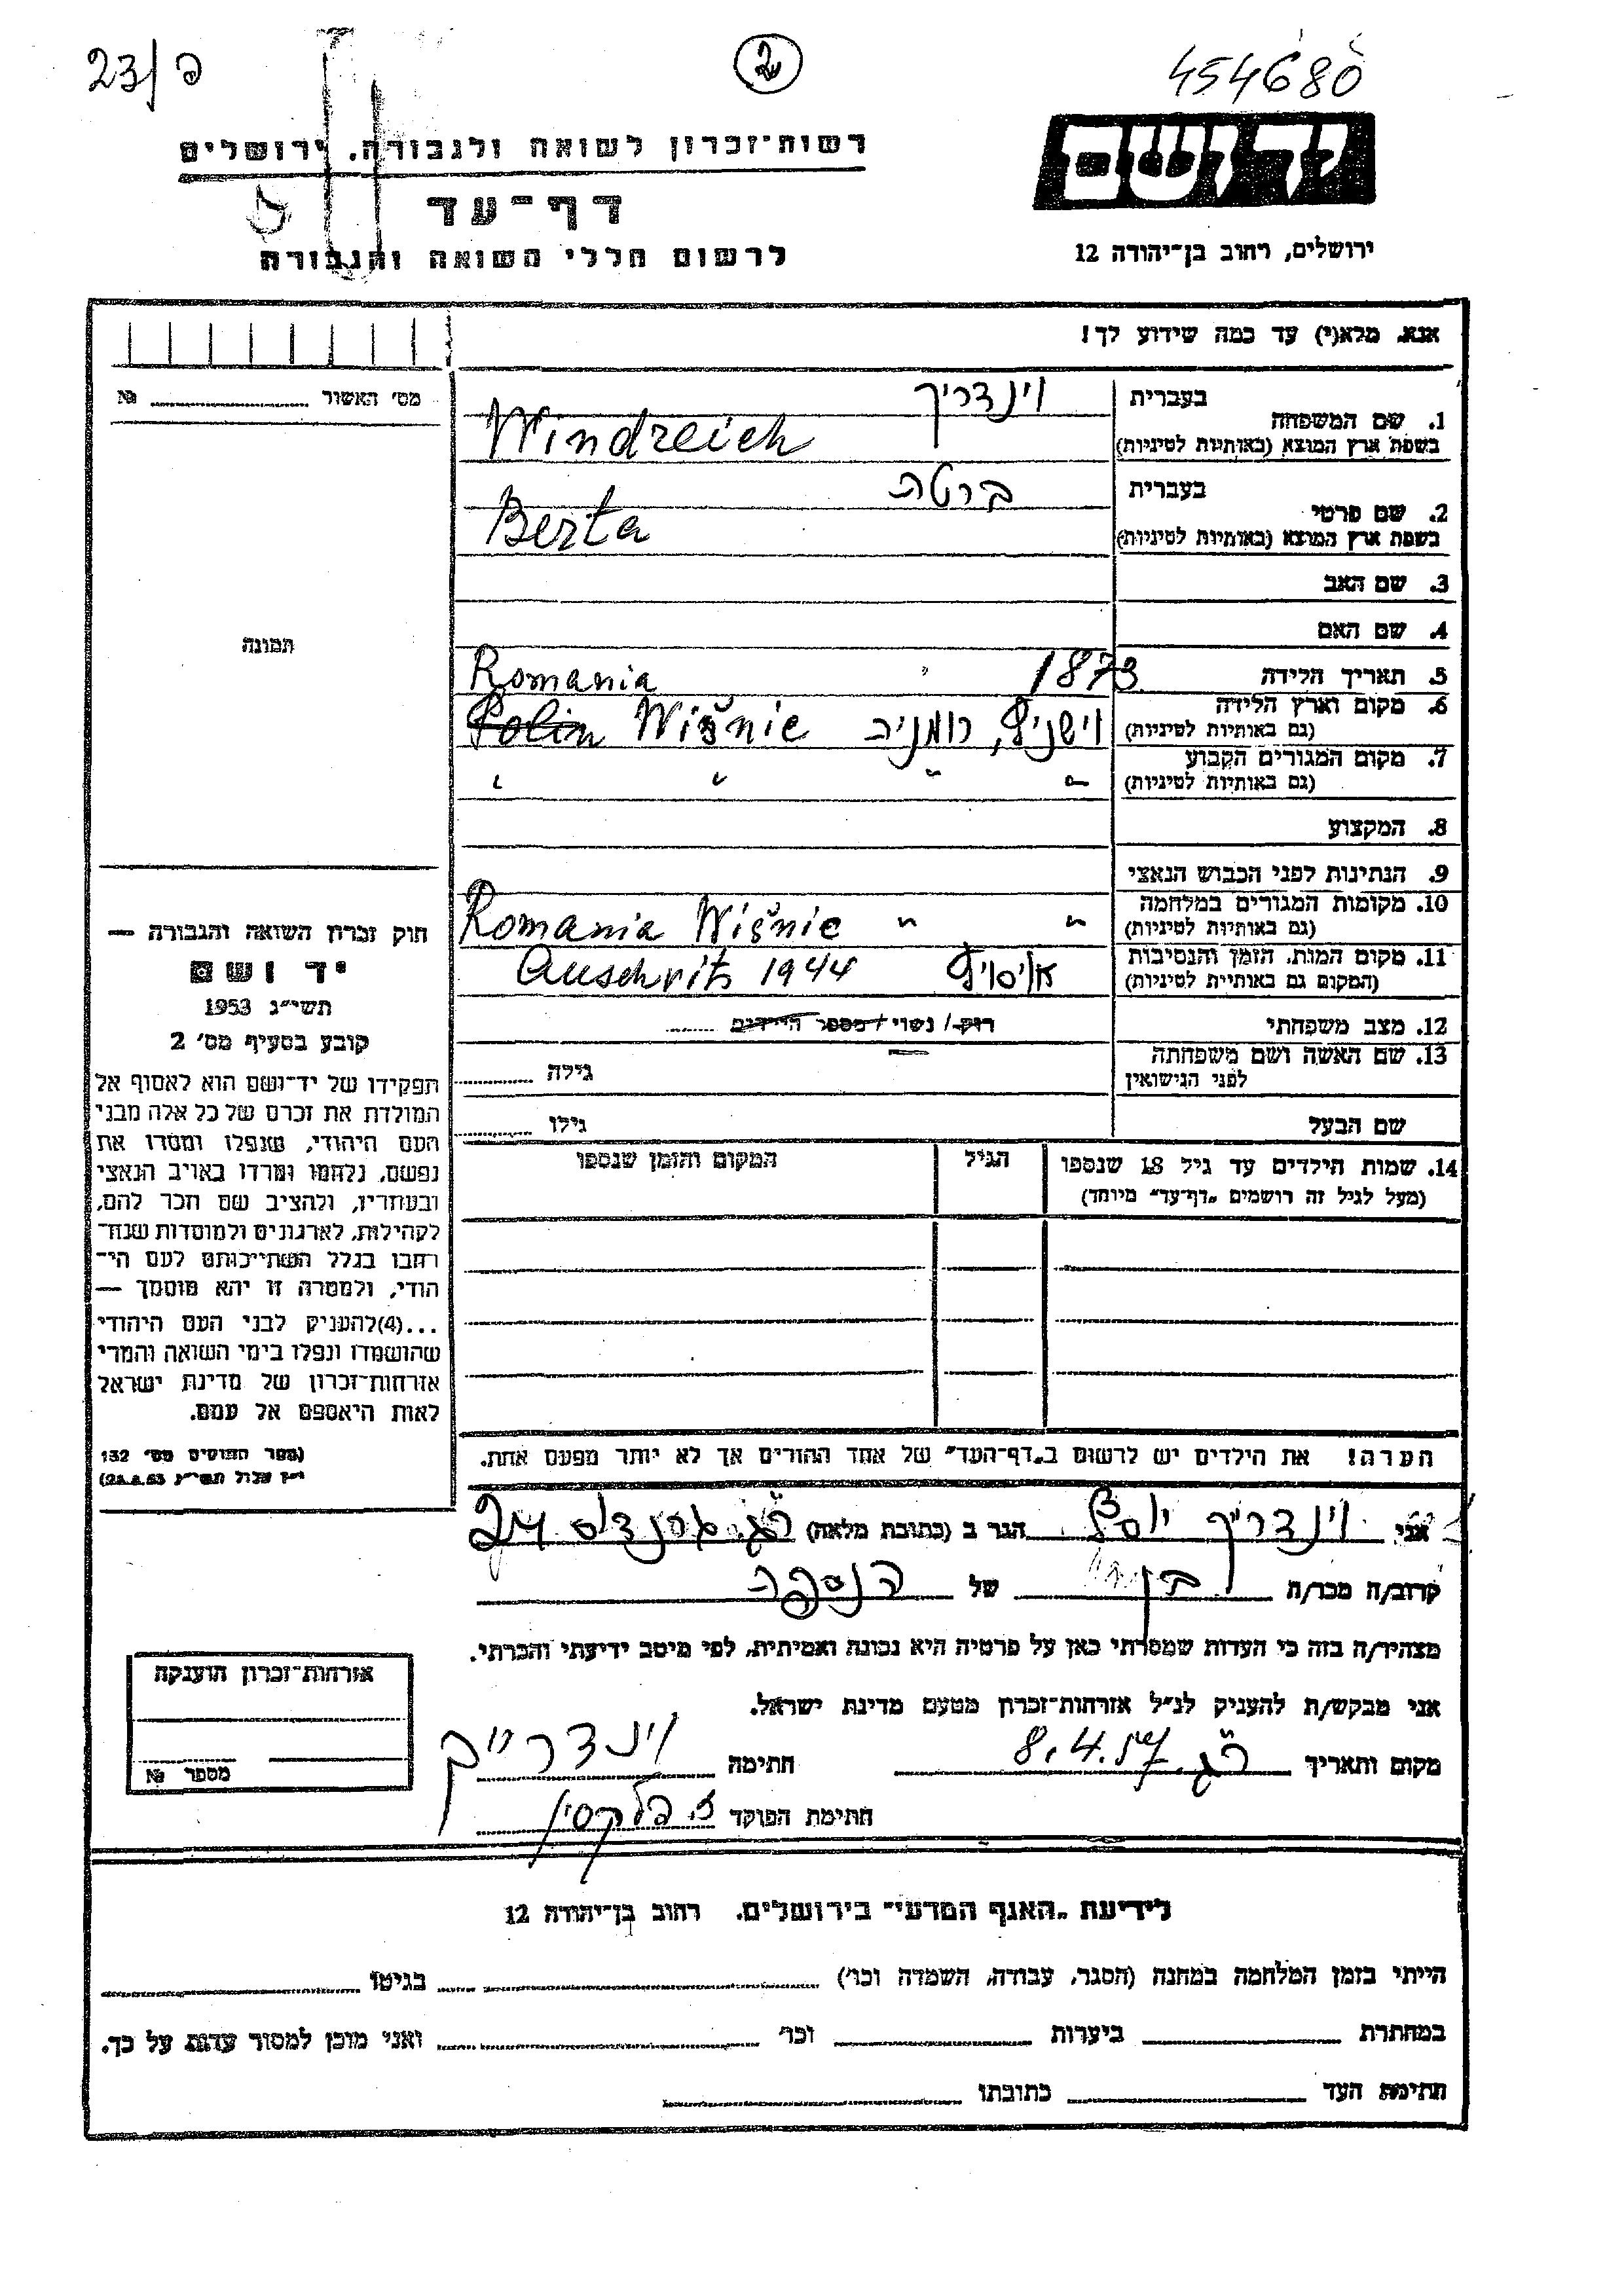 23/פ
2
454680
רשות־זכרון לשואה ולגבורה. ירושלים
דף־עד
לרשום חללי השואה והגבורה
יד ושם
ירושלים, רחוב בן־יהודה 12
אנא. מלא(י) עד כמה שידוע לך!
מס׳ האשור № 
תמונה
1. שם המשפחה בעברית וינדריך
בשפת ארץ המוצא (באותיות לטיניות) Windreich
2. שם פרטי בעברית ברטה
בשפת ארץ המוצא (באותיות לטיניות) Berta
3. שם האב
4. שם האם
5. תאריך הלידה 1873 Romania
6. מקום וארץ הלידה
(גם באותיות לטיניות) רומניה Wišnie Polin
7. מקום המגורים הקבוע
(גם באותיות לטיניות) " " " "
8. המקצוע
9. הנתינות לפני הכבוש הנאצי
10. מקומות המגורים במלחמה
(גם באותיות לטיניות) " " Romania Wišnie
11. מקום המות. הזמן והנסיבות
(המקום גם באותיית לטיניות) Auschvits 1944
12. מצב משפחתי רוק/ נשוי /מספר הילדים ........
13. שם האשה ושם משפחתה
לפני הנישואין גילה
שם הבעל גילו
14. שמות הילדים עד גיל 18 שנספו הגיל המקום והזמן שנספו
(מעל לגיל זה רושמים „דף־עד״ מיוחד)
הערה! את הילדים יש לרשום ב„דף־העד״ של אחד ההורים אך לא יותר מפעם אחת.
חוק זכרון השואה והגבורה —
יד ושם
תשי״ג 1953
קובע בסעיף מס׳ 2
תפקידו של יד־ושם הוא לאסוף אל
המולדת את זכרם של כל אלה מבני
העם היהודי, שנפלו ומסרו את
נפשם, נלחמו ומרדו באויב הנאצי
ובעוזריו, ולהציב שם וזכר להם,
לקהילות, לארגונים ולמוסדות שנח־
רבו בגלל השתייכותם לעם הי־
הודי, ולמטרה זו יהא מוסמך —
...(4)להעניק לבני העם היהודי
שהושמדו ונפלו בימי השואה והמרי
אזרחות־זכרון של מדינת ישראל
לאות היאספם אל עמם.
(ספר החוקים מס׳ 132
י״ז אלול תשי״ג 28.8.53)
אני וינדריך יוסף הגר ב (כתובת מלאה) ר״ג 24
קרוב/ה מכר/ה בן של הנספה
מצהיר/ה בזה כי העדות שמסרתי כאן על פרטיה היא נכונה ואמיתית, לפי מיטב ידיעתי והכרתי.
אני מבקש/ת להעניק לנ״ל אזרחות־זכרון מטעם מדינת ישראל.
מקום ותאריך ר״ג 8.4.57 חתימה וינדרייך
חתימת הפוקד
אזרחות־זכרון הוענקה
מספר №
לידיעת „האגף המדעי״ בירושלים. רחוב בן־יהודה 12
הייתי בזמן המלחמה במחנה (הסגר, עבודה, השמדה וכו׳) בגיטו
במחתרת ביערות וכו׳ ואני מוכן למסור עדות על כך.
חתימת העד כתובתו